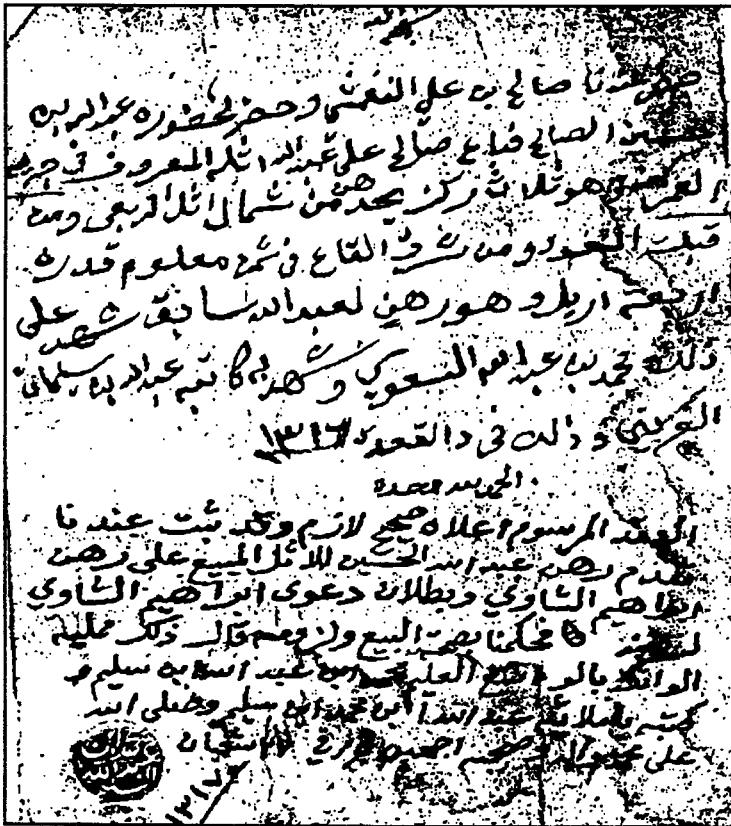 الله
حضر عندنا صالح بن علي النغيمشي وحضر لحضوره عبد الله بن
حسين الصالح فباع صالح على عبد الله اثله المعروف في
وهو ثلاث ركز يحدهن من شمال اثل الربعي ومن
قبلت النفود ومن شرق القاع في ثمن معلوم قدره
اربعة اريل وهو رهن لعبد الله سابق شهد على
ذلك محمد بن عبد الله وشهد به كاتبه عبد الله بن سليمان
وذلك في ذا القعدة ١٣١٦
الحمد لله وحده
العقد المرسوم اعلاه صحيح لازم وقد ثبت عندنا
تقدم رهن عبد الله الحسين للاثل المبيع على رهن
ابراهيم الشاوي وبطلان دعوى ابراهيم الشاوي
فحكمنا بصحة البيع ولزومه قال ذلك ممليه
محمد ابن عبد الله ابن سليم و
كتبه باملائه عبد الله ابن محمد ابن سليم وصلى الله
على محمد واله وصحبه اجمعين
١٣١٧